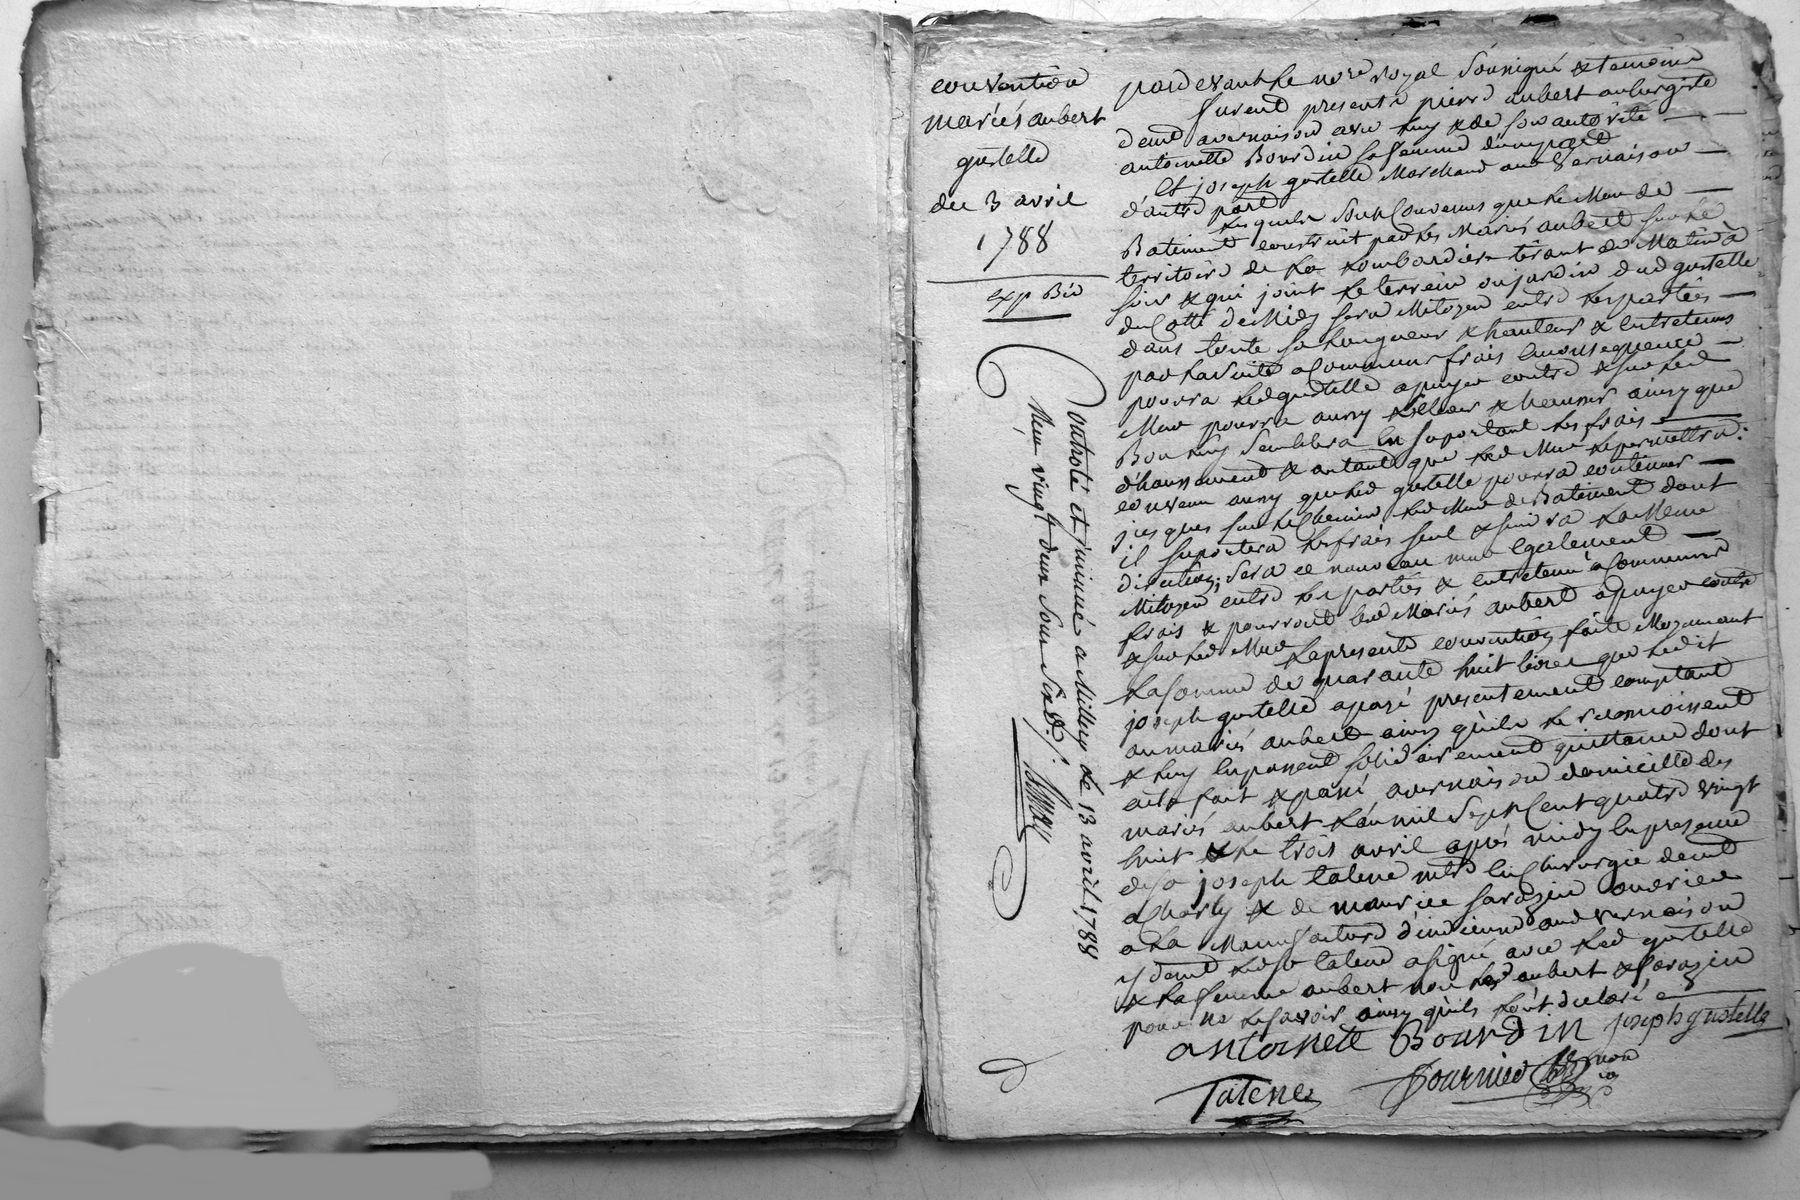 convention
mariés aubert
gustelle
du 3 avril
1788
exp
Controlé et insinué a Millery le 13 avril 1788
Reçu vingt deux sous six d.
pardevant le nore royal soussigné & temoins
furent presents pierre aubert aubergiste
demt a vernaison avec luy & de son autorité
antoinette Bourdin sa femme d'une part
Et joseph gustelle Marchand aud vernaison
d'autre part
Lesquels sont Convenus que le Mur de
Batiment construit par les Mariés aubert sur le
territoire de La Lombardiere tirant de Matin a
soir & qui joint le terrein ou jardin dud gustelle
du Cotté de Midy sera Mitoyen entre les parties
dans toute sa Longueur & hauteur & entretenus
par la suite a Communs frais En consequence
pourra led gustelle apuyer contre & sur led
Mur pourra aussy l'Elever & hausser ainsy que
Bon luy Semblera En suportant les frais
d'haussement & autant que led Mur le permettra:
convenu aussy que led gustelle pourra continuer
jusques sur le Chemin led Mur de Batiment dont
il suportera les frais seul & suivra la Meme
direction; sera ce nouveau mur Egalement
Mitoyen entre les parties & entretenu a Communs
frais & pourront lesd Mariés aubert apuyer contre
& sur led Mur La presente convention faite Moyennant
La Somme de quarante huit livres que ledit
joseph gustelle a payé presentement comptant
aux mariés aubert ainsy qu'ils le reconnoissent
& luy En passent solidairement quittance dont
acte fait & passé a vernaison domicille des
mariés aubert L'an mil Sept Cent quatre vingt
huit & le trois avril après midy En presence
de sr joseph talene mtre En Chirurgie demt
a Charly & de maurice sarazin ouvrier
a La Manufacture d'indienne aud vernaison
y demt led sr talene a signé avec led gustelle
& La femme aubert non led aubert & sarazin
pour ne le savoir ainsy qu'ils L'ont declaré
antoinete Bourdin joseph gustelle
Talene fournier